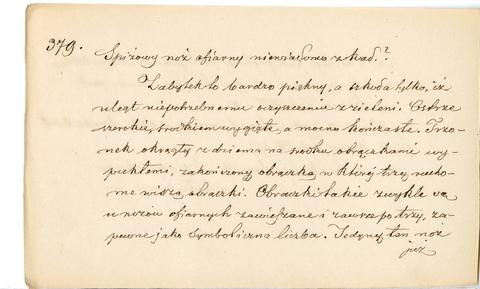 379.
Spiżowy nóż ofiarny niewiadomo z kad.?
Zabytek to bardzo piękny, a szkoda tylko, iż
uległ niepotrzebnemu oczyszczeniu z zieleni. Ostrze
szerokie, środkiem wygięte, a mocno kończaste. Trzo-
nek okrągły z dziema na środku obrączkami wy-
pukłemi, zakończony obrączką, w której trzy rucho-
me wiszą obrączki. Obrączki takie zwykle są
u nożów ofiarnych zawieszane i zawsze po trzy, za-
pewne jako symboliczna liczba. Jedyny ten nóż
już